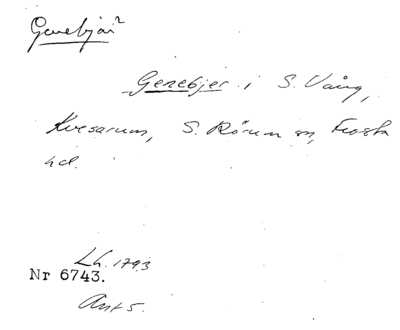 Genebjär
Genebjer i S. Vång,
Kvesarum, S. Rörum sn, Frosta
hd.
Lh. 1793
Nr 6743.
Ant 5.